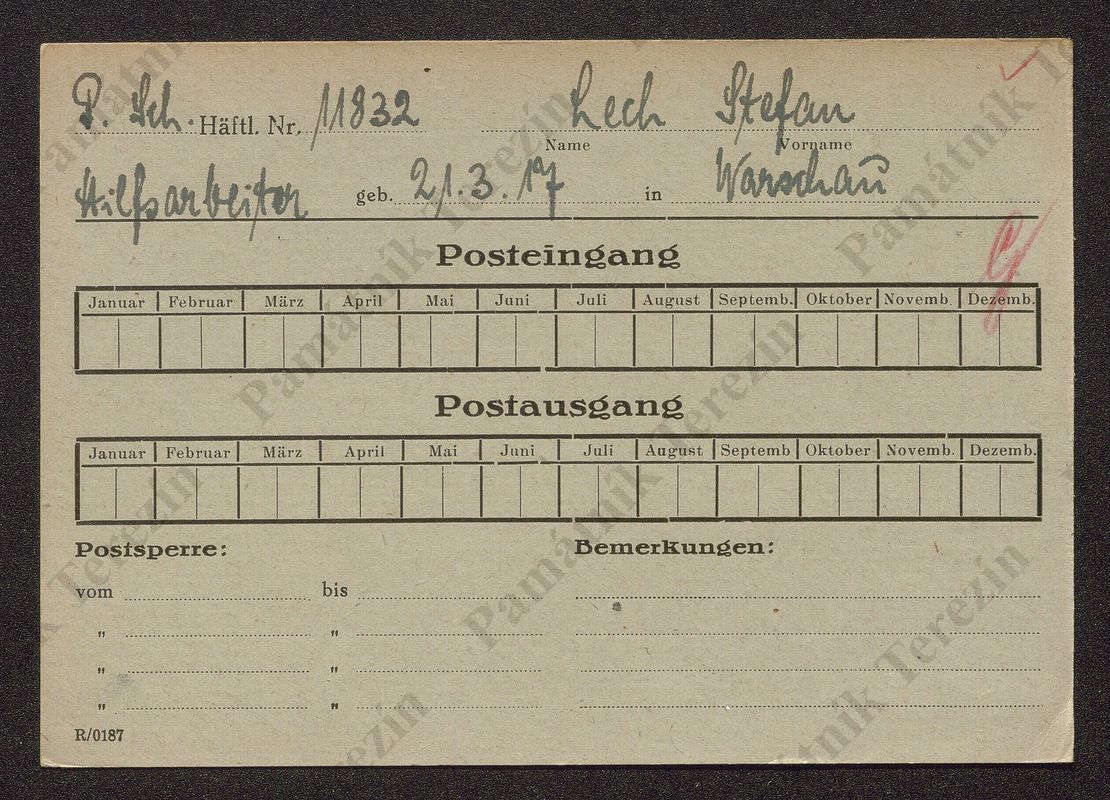 P. Sch. Häftl. Nr. 11832 Lech Stefan
Name Vorname
Hilfsarbeiter geb. 21.3.17 in Warschau
Posteingang
Januar Februar März April Mai Juni Juli August Septemb. Oktober Novemb. Dezemb.
Postausgang
Januar Februar März April Mai Juni Juli August Septemb Oktober Novemb. Dezemb.
Postsperre: Bemerkungen:
vom bis
" "
" "
" "
R/0187
Památník Terezín